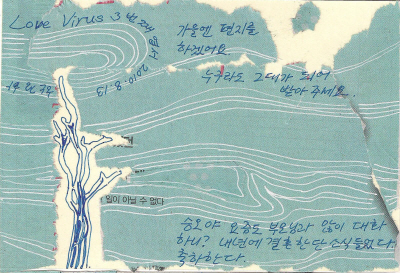 Love Virus 3번째 엽서
2010.8.13
가을엔 편지를
하겠어요.
누구라도 그대가 되어
받아 주세요.
일이 아닐 수 없다
승호야 요즘도 부모님과 많이 대화
하니? 내년에 결혼한단 소식들었다.
축하한다.